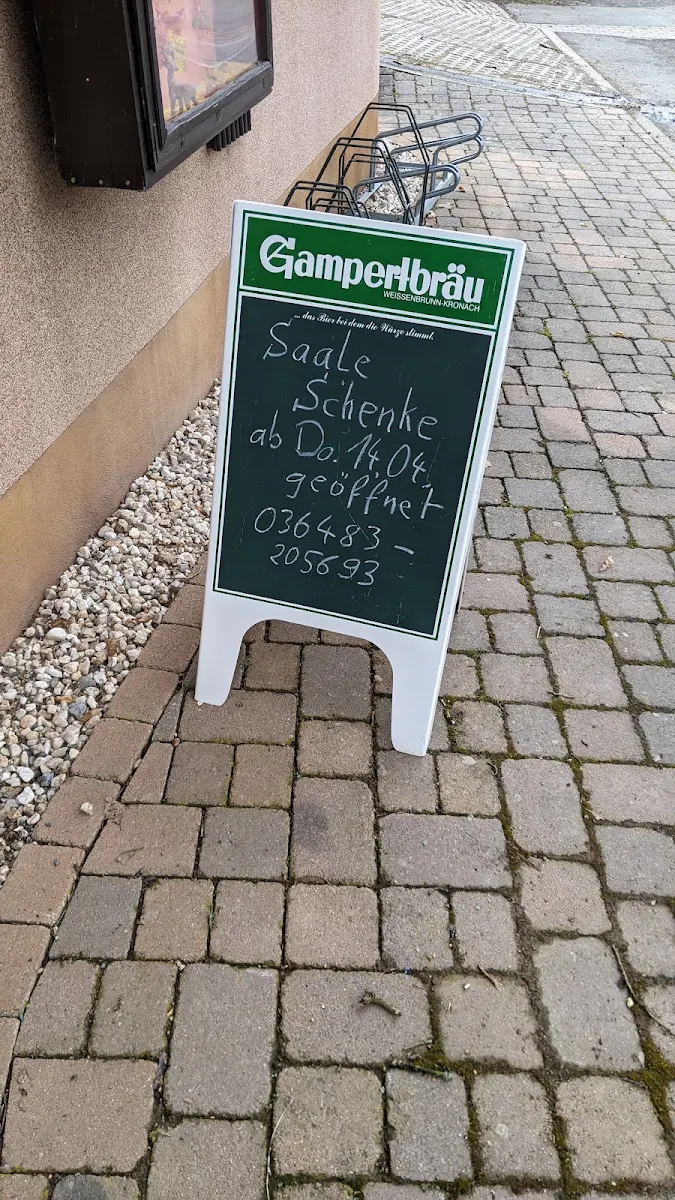 Gampertbräu
WEISSENBRUNN-KRONACH
... das Bier bei dem die Würze stimmt.
Saale
Schenke
ab Do. 14.04.
geöffnet
036483 –
205693